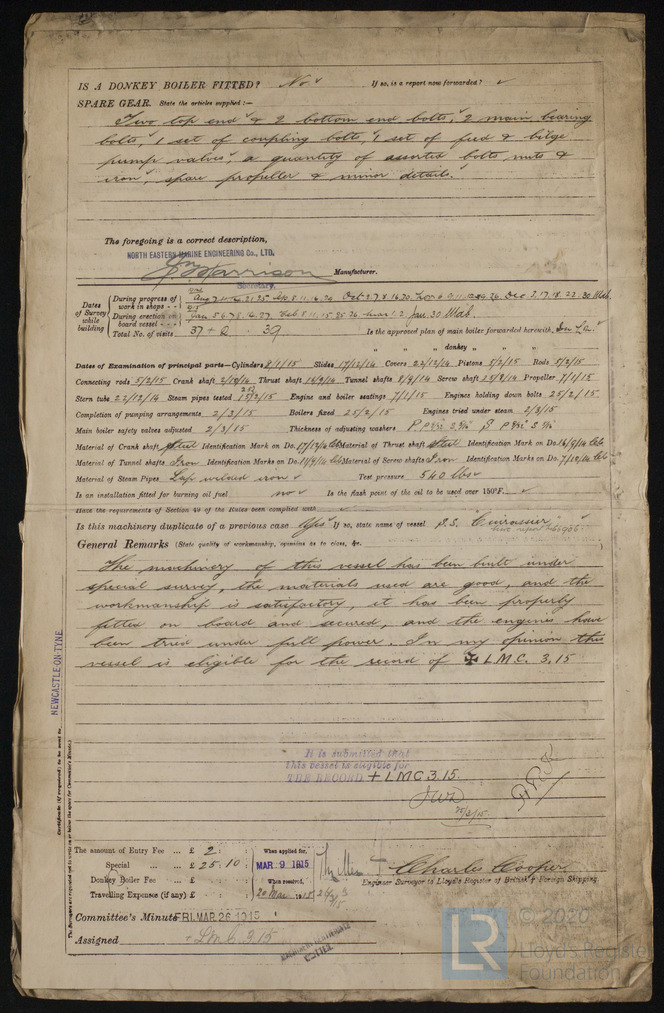 IS A DONKEY BOILER FITTED? No If so, is a report now forwarded?
SPARE GEAR. State the articles supplied:—
Two top end & 2 bottom end bolts, 2 main bearing
bolts, 1 set of coupling bolts, 1 set of feed & bilge
pump valves, a quantity of assorted bolts, nuts &
iron, spare propeller & minor details.
The foregoing is a correct description,
NORTH EASTERN MARINE ENGINEERING Co., LTD.
Harrison Manufacturer.
Secretary.
Dates of Survey while building
During progress of work in shops - - Aug
During erection on board vessel - - Jan 5 6 7 8 14 27 Feb 8 11 15 25 26 Mar 1 2
Total No. of visits 37 + 2 39 Is the approved plan of main boiler forwarded herewith
" " " donkey " " "
Dates of Examination of principal parts—Cylinders 8/1/15 Slides 17/12/14 Covers 22/12/14 Pistons 5/2/15 Rods 5/2/15
Connecting rods 5/2/15 Crank shaft 2/10/14 Thrust shaft 16/9/14 Tunnel shafts 8/9/14 Screw shaft 25/8/14 Propeller 7/1/15
Stern tube 22/12/14 Steam pipes tested 15/2/15 Engine and boiler seatings 7/1/15 Engines holding down bolts 25/2/15
Completion of pumping arrangements 2/3/15 Boilers fixed 25/2/15 Engines tried under steam 2/3/15
Main boiler safety valves adjusted 2/3/15 Thickness of adjusting washers
Material of Crank shaft Steel Identification Mark on Do. Material of Thrust shaft Steel Identification Mark on Do. 16/9/14
Material of Tunnel shafts Iron Identification Marks on Do. Material of Screw shafts Iron Identification Marks on Do. 7/10/14
Material of Steam Pipes Lap welded iron Test pressure 540 lbs
Is an installation fitted for burning oil fuel no Is the flash point of the oil to be used over 150°F.
Have the requirements of Section 49 of the Rules been complied with
Is this machinery duplicate of a previous case Yes If so, state name of vessel S.S. Cuirassier
General Remarks (State quality of workmanship, opinions as to class, &c.
The machinery of this vessel has been built under
special survey, the materials used are good, and the
workmanship is satisfactory, it has been properly
fitted on board and secured, and the engines have
been tried under full power. In my opinion this
vessel is eligible for the record of ✠ L.M.C. 3.15
NEWCASTLE-ON-TYNE
Certificate (if required) to be sent to
It is submitted that
this vessel is eligible for
THE RECORD + LMC 3.15.
The amount of Entry Fee ... £ 2 : When applied for,
Special ... ... £ 25.10 : MAR. 9 1915
Donkey Boiler Fee ... ... £ : When received,
Travelling Expenses (if any) £ : 20 Mar 1915
Charles Cooper
Engineer Surveyor to Lloyd's Register of British & Foreign Shipping.
Committee's Minute FRI. MAR. 26 1915
Assigned + LMC 3.15
LR
© 2020
Lloyd's Register
Foundation